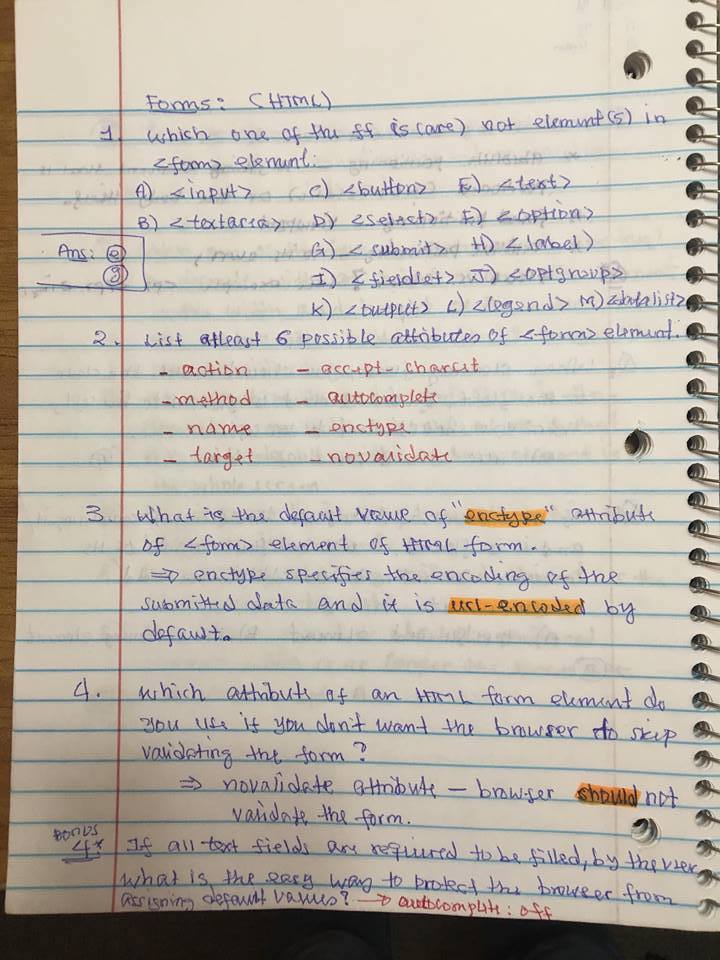 Forms: (HTML)
1. Which one of the ff is (are) not element(s) in
<form> element.
A) <input> C) <button> E) <text>
B) <textarea> D) <select> F) <option>
Ans: e G) <submit> H) <label>
g I) <fieldset> J) <optgroup>
K) <output> L) <legend> M) <datalist>
2. List atleast 6 possible attributes of <form> element.
- action - accept-charset
- method - autocomplete
- name - enctype
- target - novalidate
3. What is the default value of "enctype" attribute
of <form> element of HTML form.
⇒ enctype specifies the encoding of the
submitted data and it is url-encoded by
default.
4. Which attribute of an HTML form element do
you use if you don't want the browser to skip
validating the form?
⇒ novalidate attribute - browser should not
validate the form.
BONUS
4* If all text fields are required to be filled, by the user
what is the easy way to protect the browser from
assigning default values? → autocomplete: off